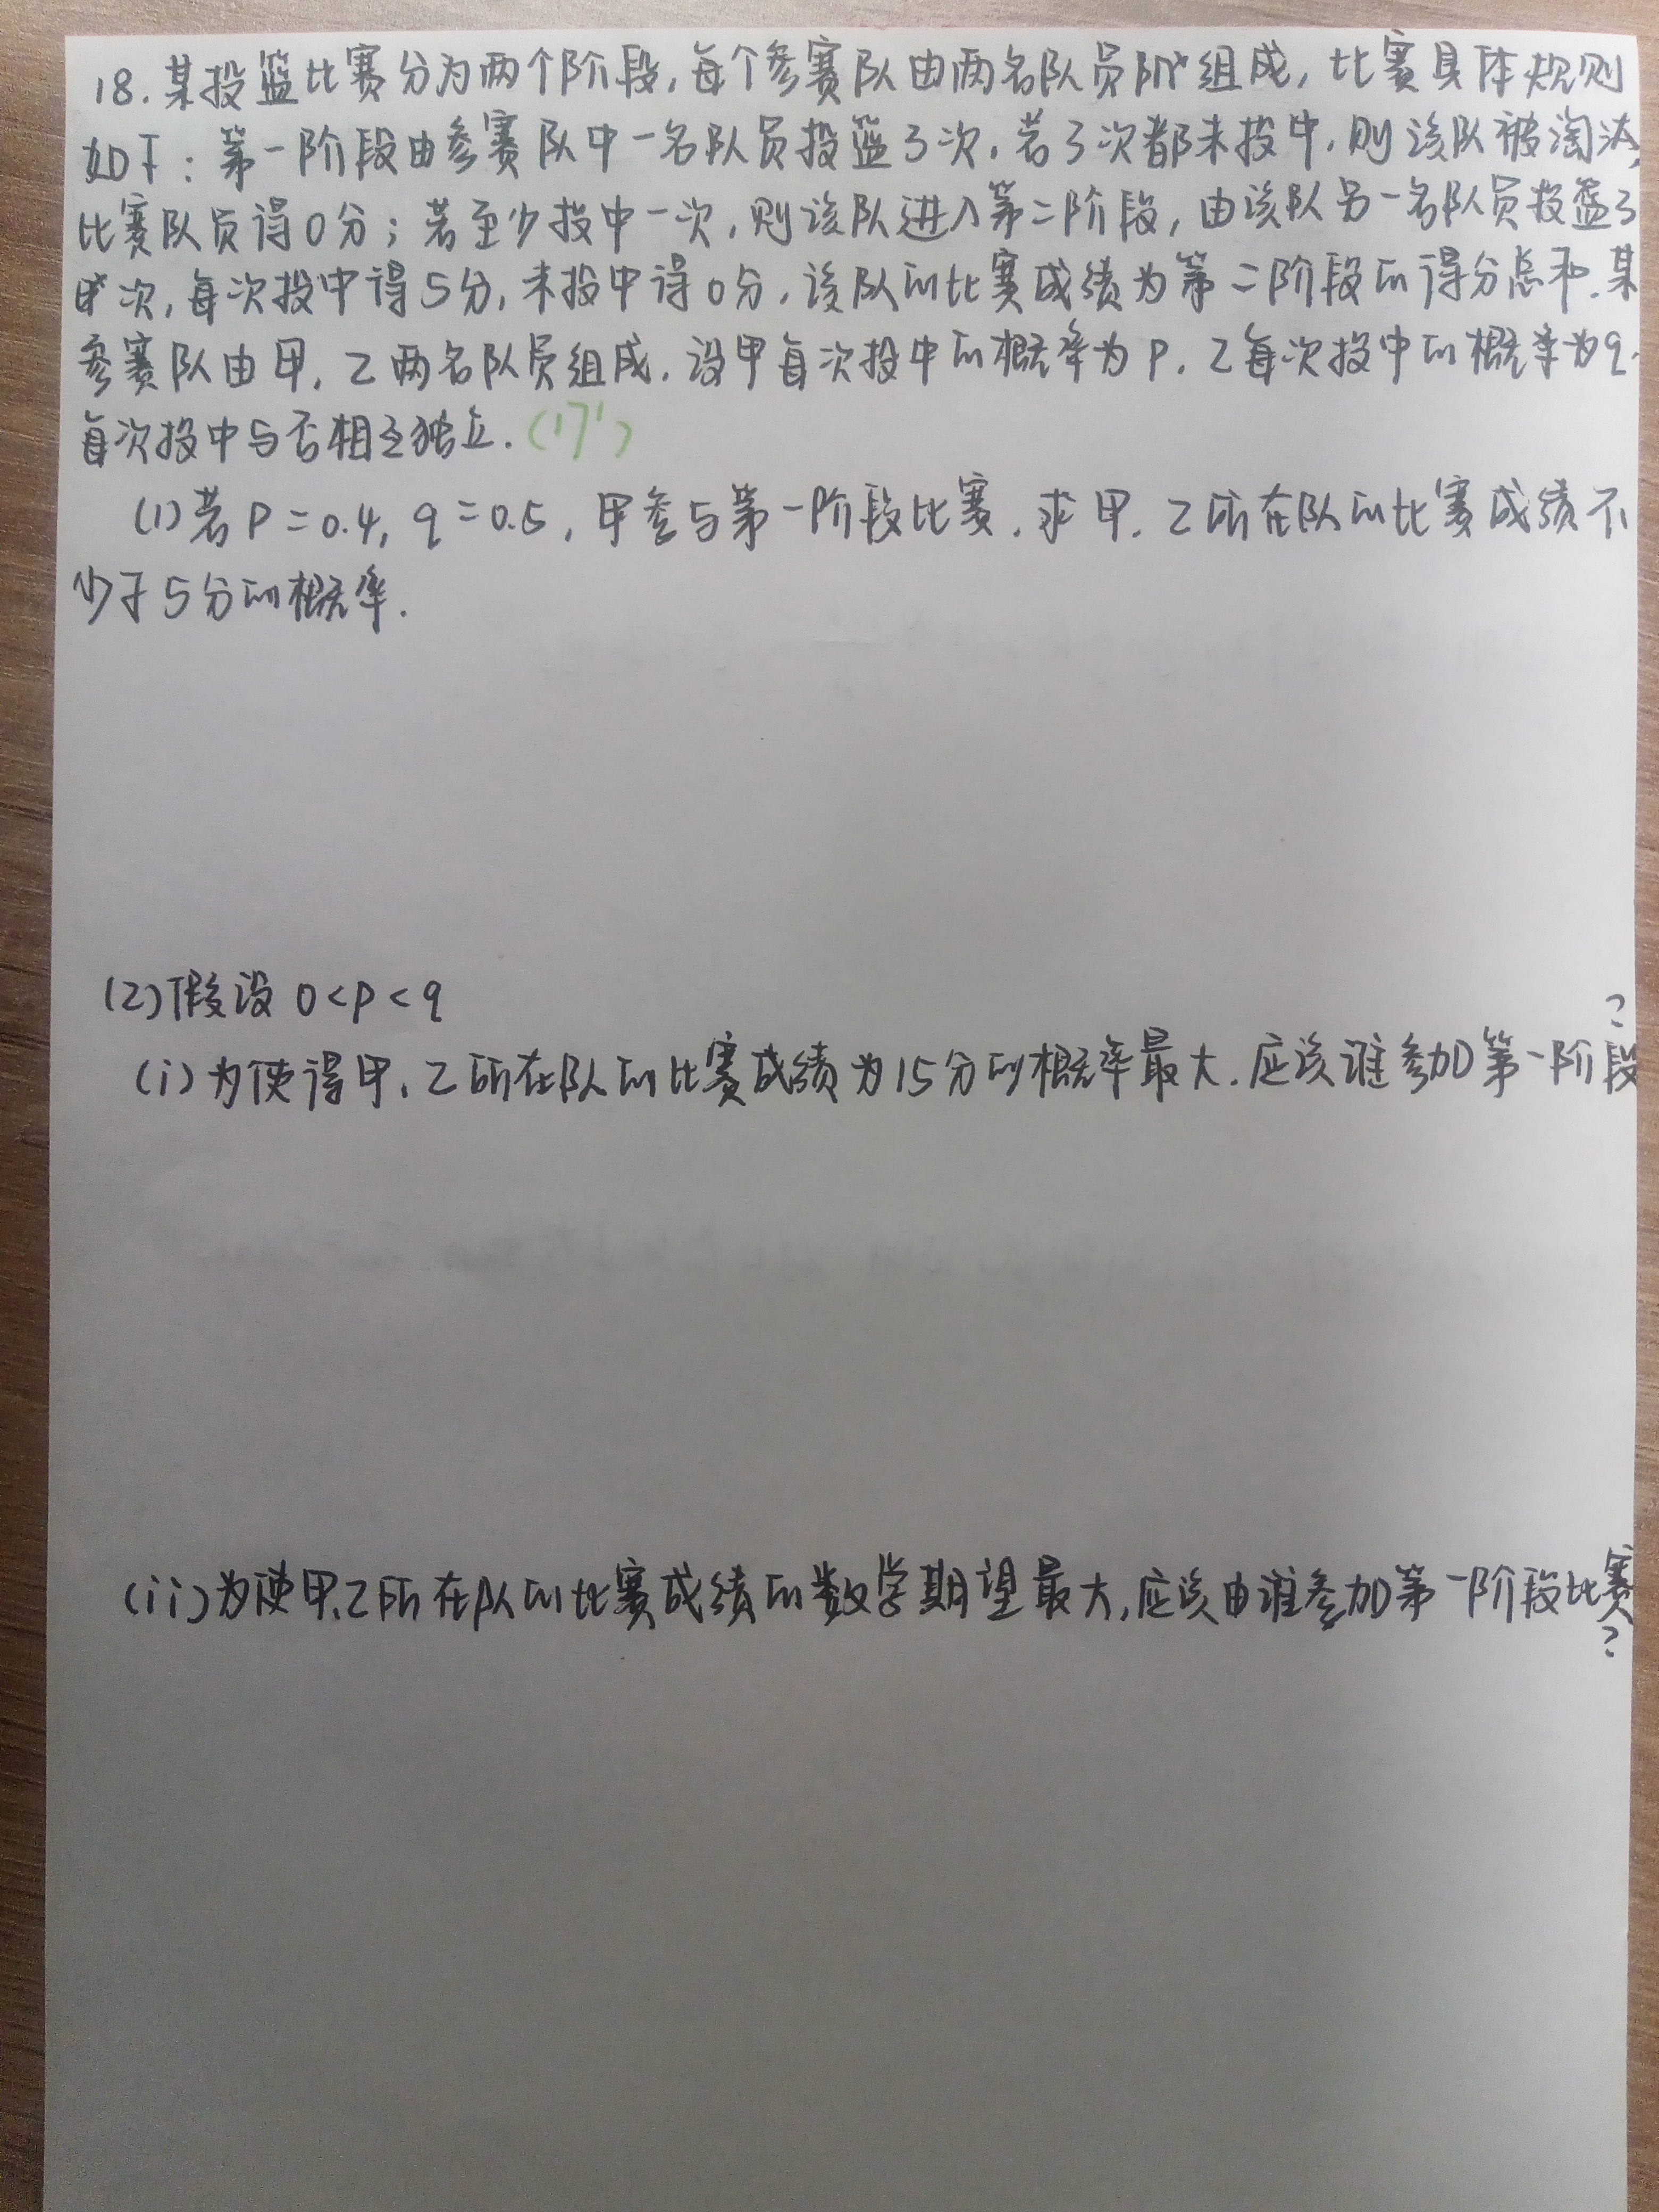 18.某投篮比赛分为两个阶段,每个参赛队由两名队员组成,比赛具体规则
如下:第一阶段由参赛队中一名队员投篮3次,若3次都未投中,则该队被淘汰,
比赛队员得0分;若至少投中一次,则该队进入第二阶段,由该队另一名队员投篮3
次,每次投中得5分,未投中得0分,该队的比赛成绩为第二阶段的得分总和.某
参赛队由甲,乙两名队员组成,设甲每次投中的概率为P,乙每次投中的概率为q.
每次投中与否相互独立.(17')
(1)若P=0.4,q=0.5,甲参与第一阶段比赛,求甲,乙所在队的比赛成绩不
少于5分的概率.
(2)假设0<P<q
(i)为使得甲,乙所在队的比赛成绩为15分的概率最大,应该谁参加第一阶段?
(ii)为使甲,乙所在队的比赛成绩的数学期望最大,应该由谁参加第一阶段比赛?